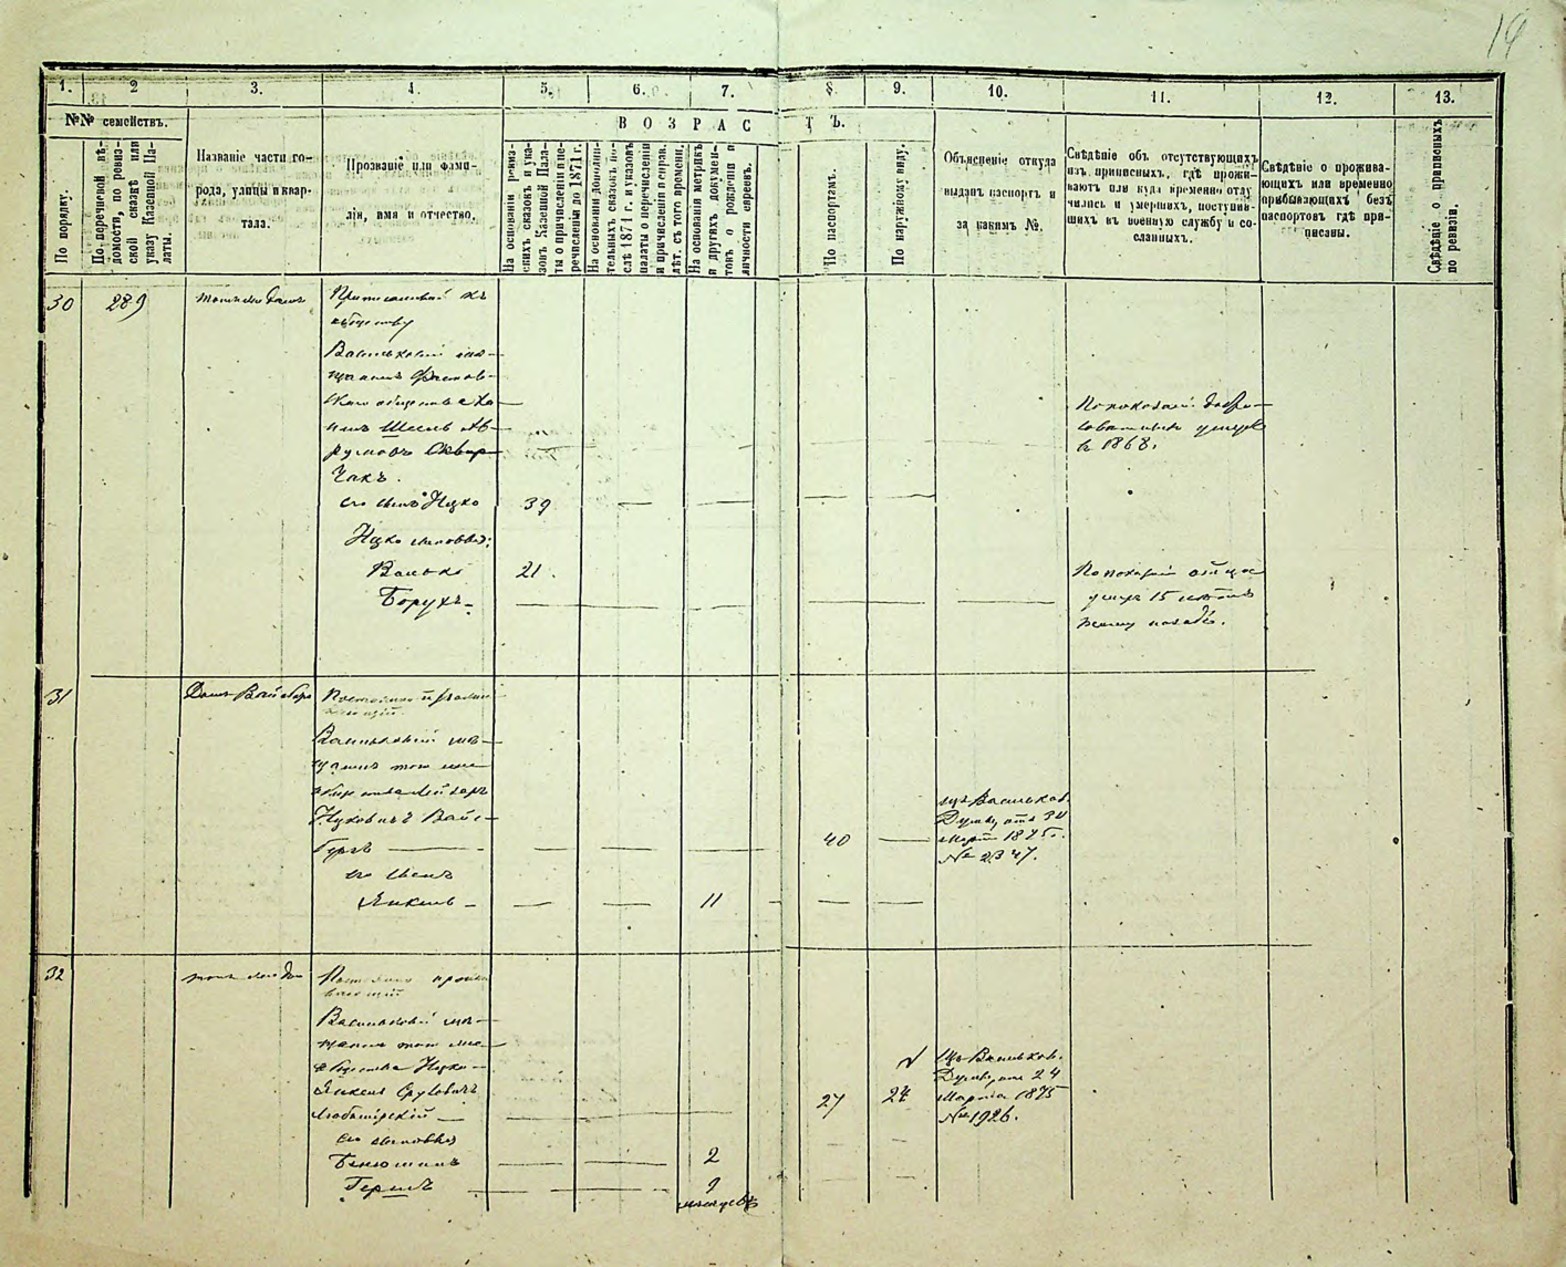 14
1.
2
3.
4.
5.
6.
7.
8.
9.
10.
11.
12.
13.
№№ семействъ.
По порядку.
По перечневой вѣ-
домости, по ревиз-
ской сказкѣ или
указу Казенной Па-
латы.
Названіе части го-
рода, улицы и квар-
тала.
Прозваніе или фами-
лія, имя и отчество.
ВОЗРАСТЪ.
На основаніи ревиз-
скихъ сказокъ и ука-
зовъ Казенной Пала-
ты о причисленіи и пе-
речисленіи до 1871 г.
На основаніи дополни-
тельныхъ сказокъ по-
слѣ 1871 г. и указовъ
палаты о перечисленіи
и причисленіи и справ.
лѣт. съ того времени.
На основаніи метрикъ
и другихъ докумен-
товъ о рожденіи и
личности евреевъ.
По паспортамъ.
По наружному виду.
Объясненіе откуда
выданъ паспортъ и
за какимъ №.
Свѣдѣніе объ отсутствующихъ
изъ приписныхъ, гдѣ прожи-
ваютъ или куда временно отлу
чились и умершихъ, поступив-
шихъ въ военную службу и со-
сланныхъ.
Свѣдѣніе о прожива-
ющихъ или временно
прибывающихъ безъ
паспортовъ гдѣ при-
писаны.
Свѣдѣніе о приписныхъ
по ревизіи.
30
289
тотъ же домъ
Приписанный къ
обществу
Васильковскій мѣ-
щанинъ Фастов-
скаго общества Ха-
имъ Шаель Аб-
румовъ Сквир-
чакъ.
его сынъ Ицко
39
Ицко сыновья:
Волько
21.
Борухъ
въ 1868.
умеръ 15 лѣтъ
тому назадъ.
31
Домъ Вайсберга
Васильковскій мѣ-
щанинъ того же
общества Лейзеръ
Ицковичъ Вайс-
бергъ
40
изъ Васильков.
Думы отъ 31
марта 1875 г.
№ 2347.
его сынъ
Янкель
11
32
тотъ же домъ
Постоянно прожи
вающій
Васильковскій мѣ-
щанинъ того же
общества Ицко-
Янкель Сруловичъ
Любомирскій
27
24
Изъ Васильков.
Думы отъ 24
Марта 1875
№ 1926.
его сыновья
Беніоминъ
2
Гершъ
9
мѣсяцевъ